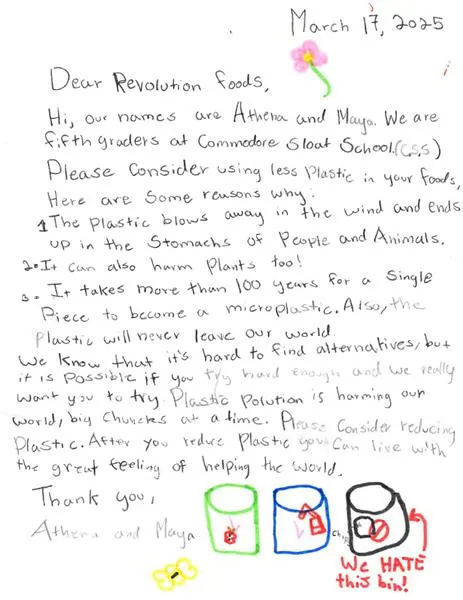 March 17, 2025
Dear Revolution foods,
Hi, our names are Athena and Maya. We are
fifth graders at Commodore Sloat School.(CSS)
Please Consider using less Plastic in your foods,
Here are Some reasons why:
1 The Plastic blows away in the wind and ends
up in the Stomachs of People and Animals.
2. It can also harm Plants too!
3. It takes more than 100 years for a Single
Piece to become a microplastic. Also, the
Plastic will never leave our world
We know that it's hard to find alternatives, but
it is Possible if you try hard enough and we really
want you to try. Plastic Polution is harming our
world, big Chuncks at a time. Please Consider reducing
Plastic. After you reduce Plastic you Can live with
the great feeling of helping the world.
Thank you,
Athena and Maya
Chips
We HATE
this bin!